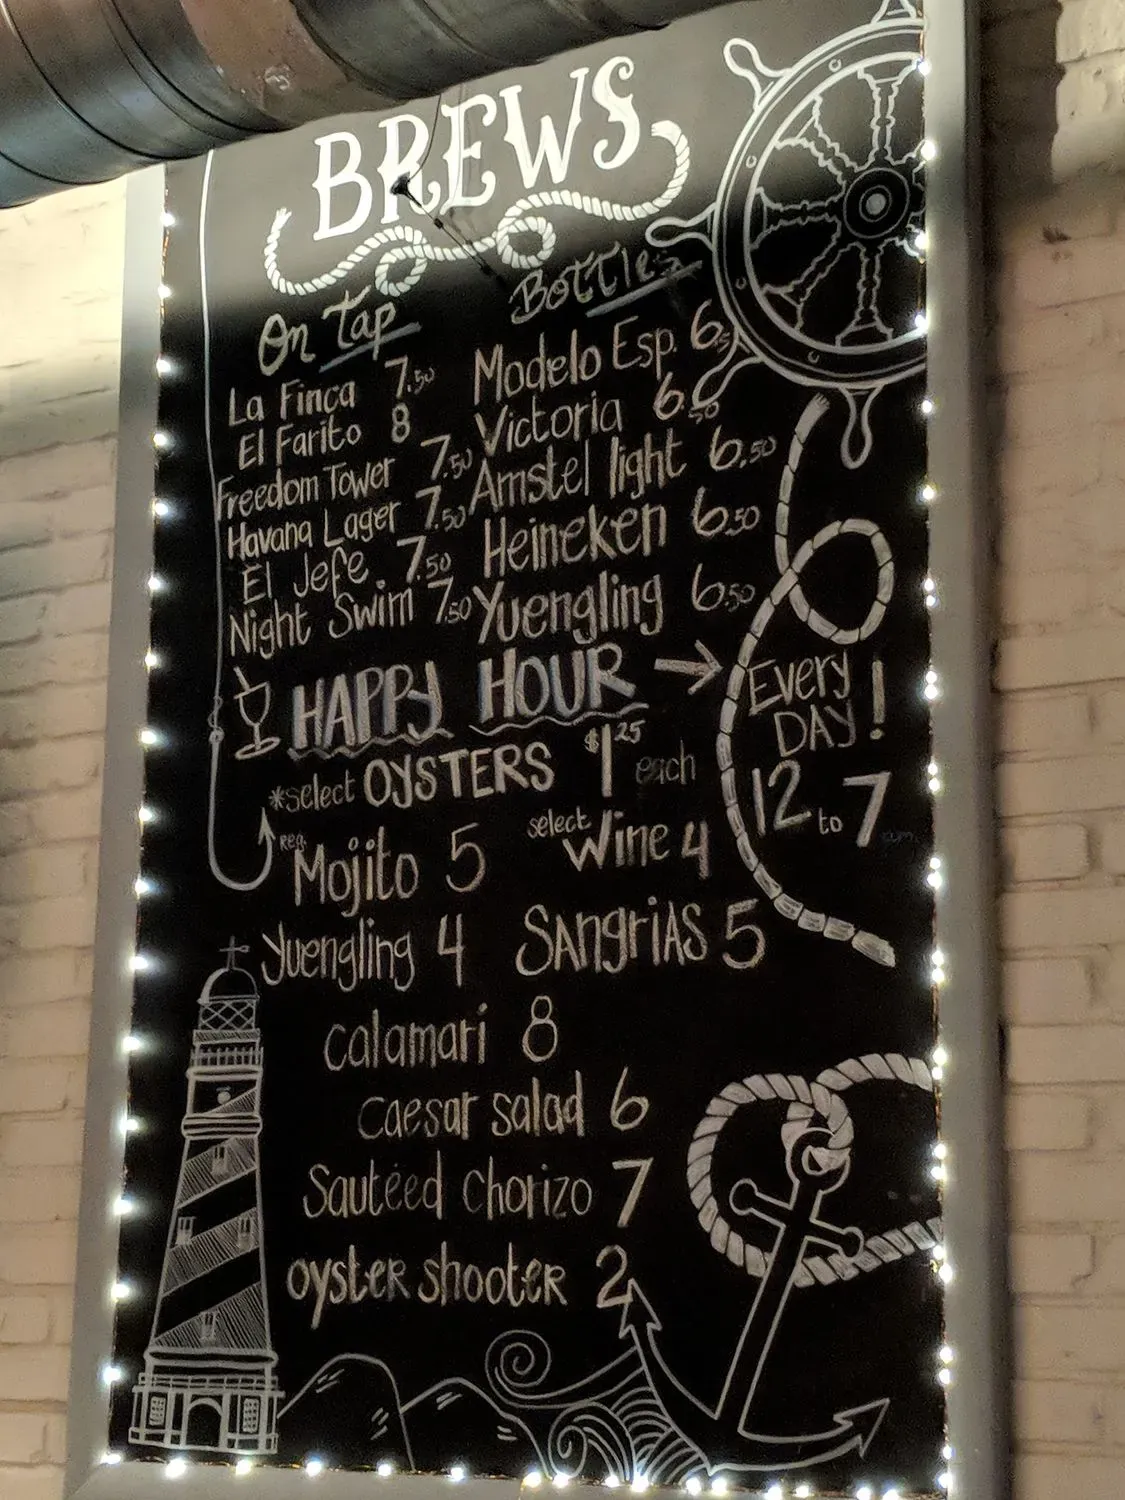 BREWS
On Tap
La Finca 7.50
El Farito 8
Freedom Tower 7.50
Havana Lager 7.50
El Jefe 7.50
Night Swim 7.50
Bottles
Modelo Esp. 6.50
Victoria 6.50
Amstel light 6.50
Heineken 6.50
Yuengling 6.50
HAPPY HOUR → Every
DAY!
12 to 7
*select OYSTERS $1.25 each
Reg. Mojito 5
select Wine 4
Yuengling 4
SANgriAS 5
calamari 8
caesar salad 6
Sautéed Chorizo 7
oysteR shooteR 2